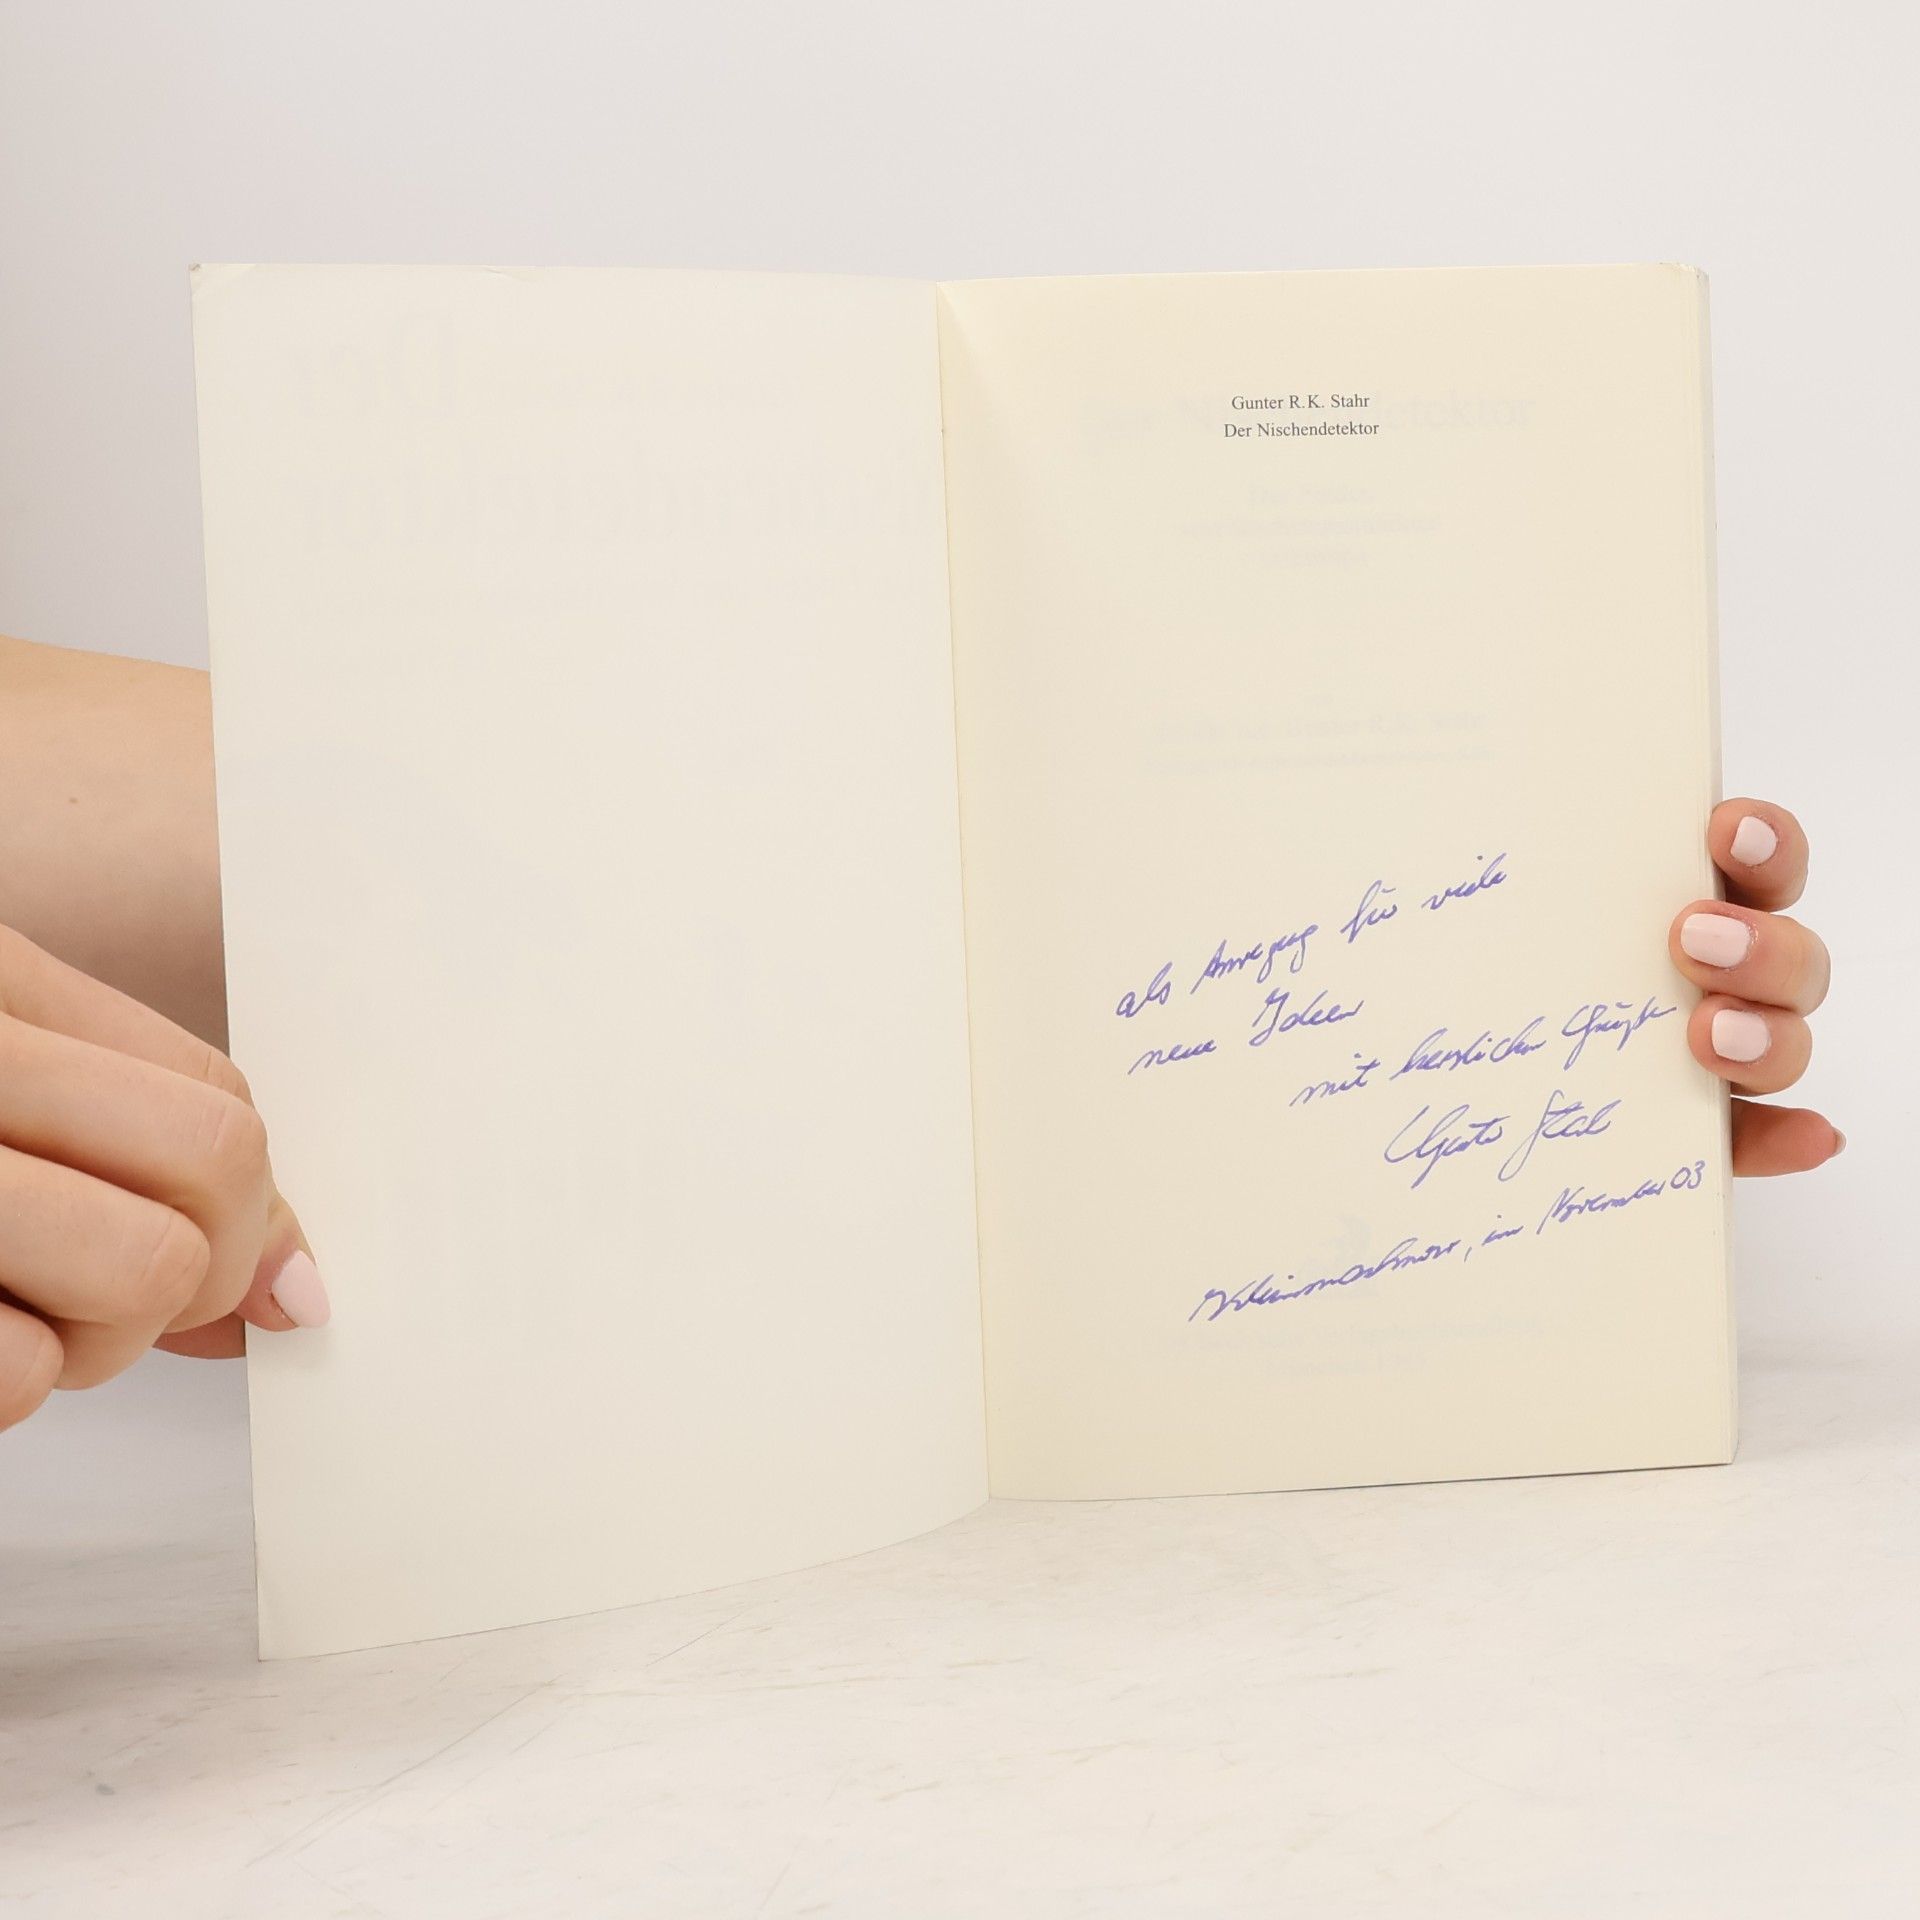 Gunter R.K. Stahr
Der Nischendetektor
als Anregung für viele
neue Ideen
mit herzlichen Grüßen
Gunter Stahr
Kleinmachnow, im November 03